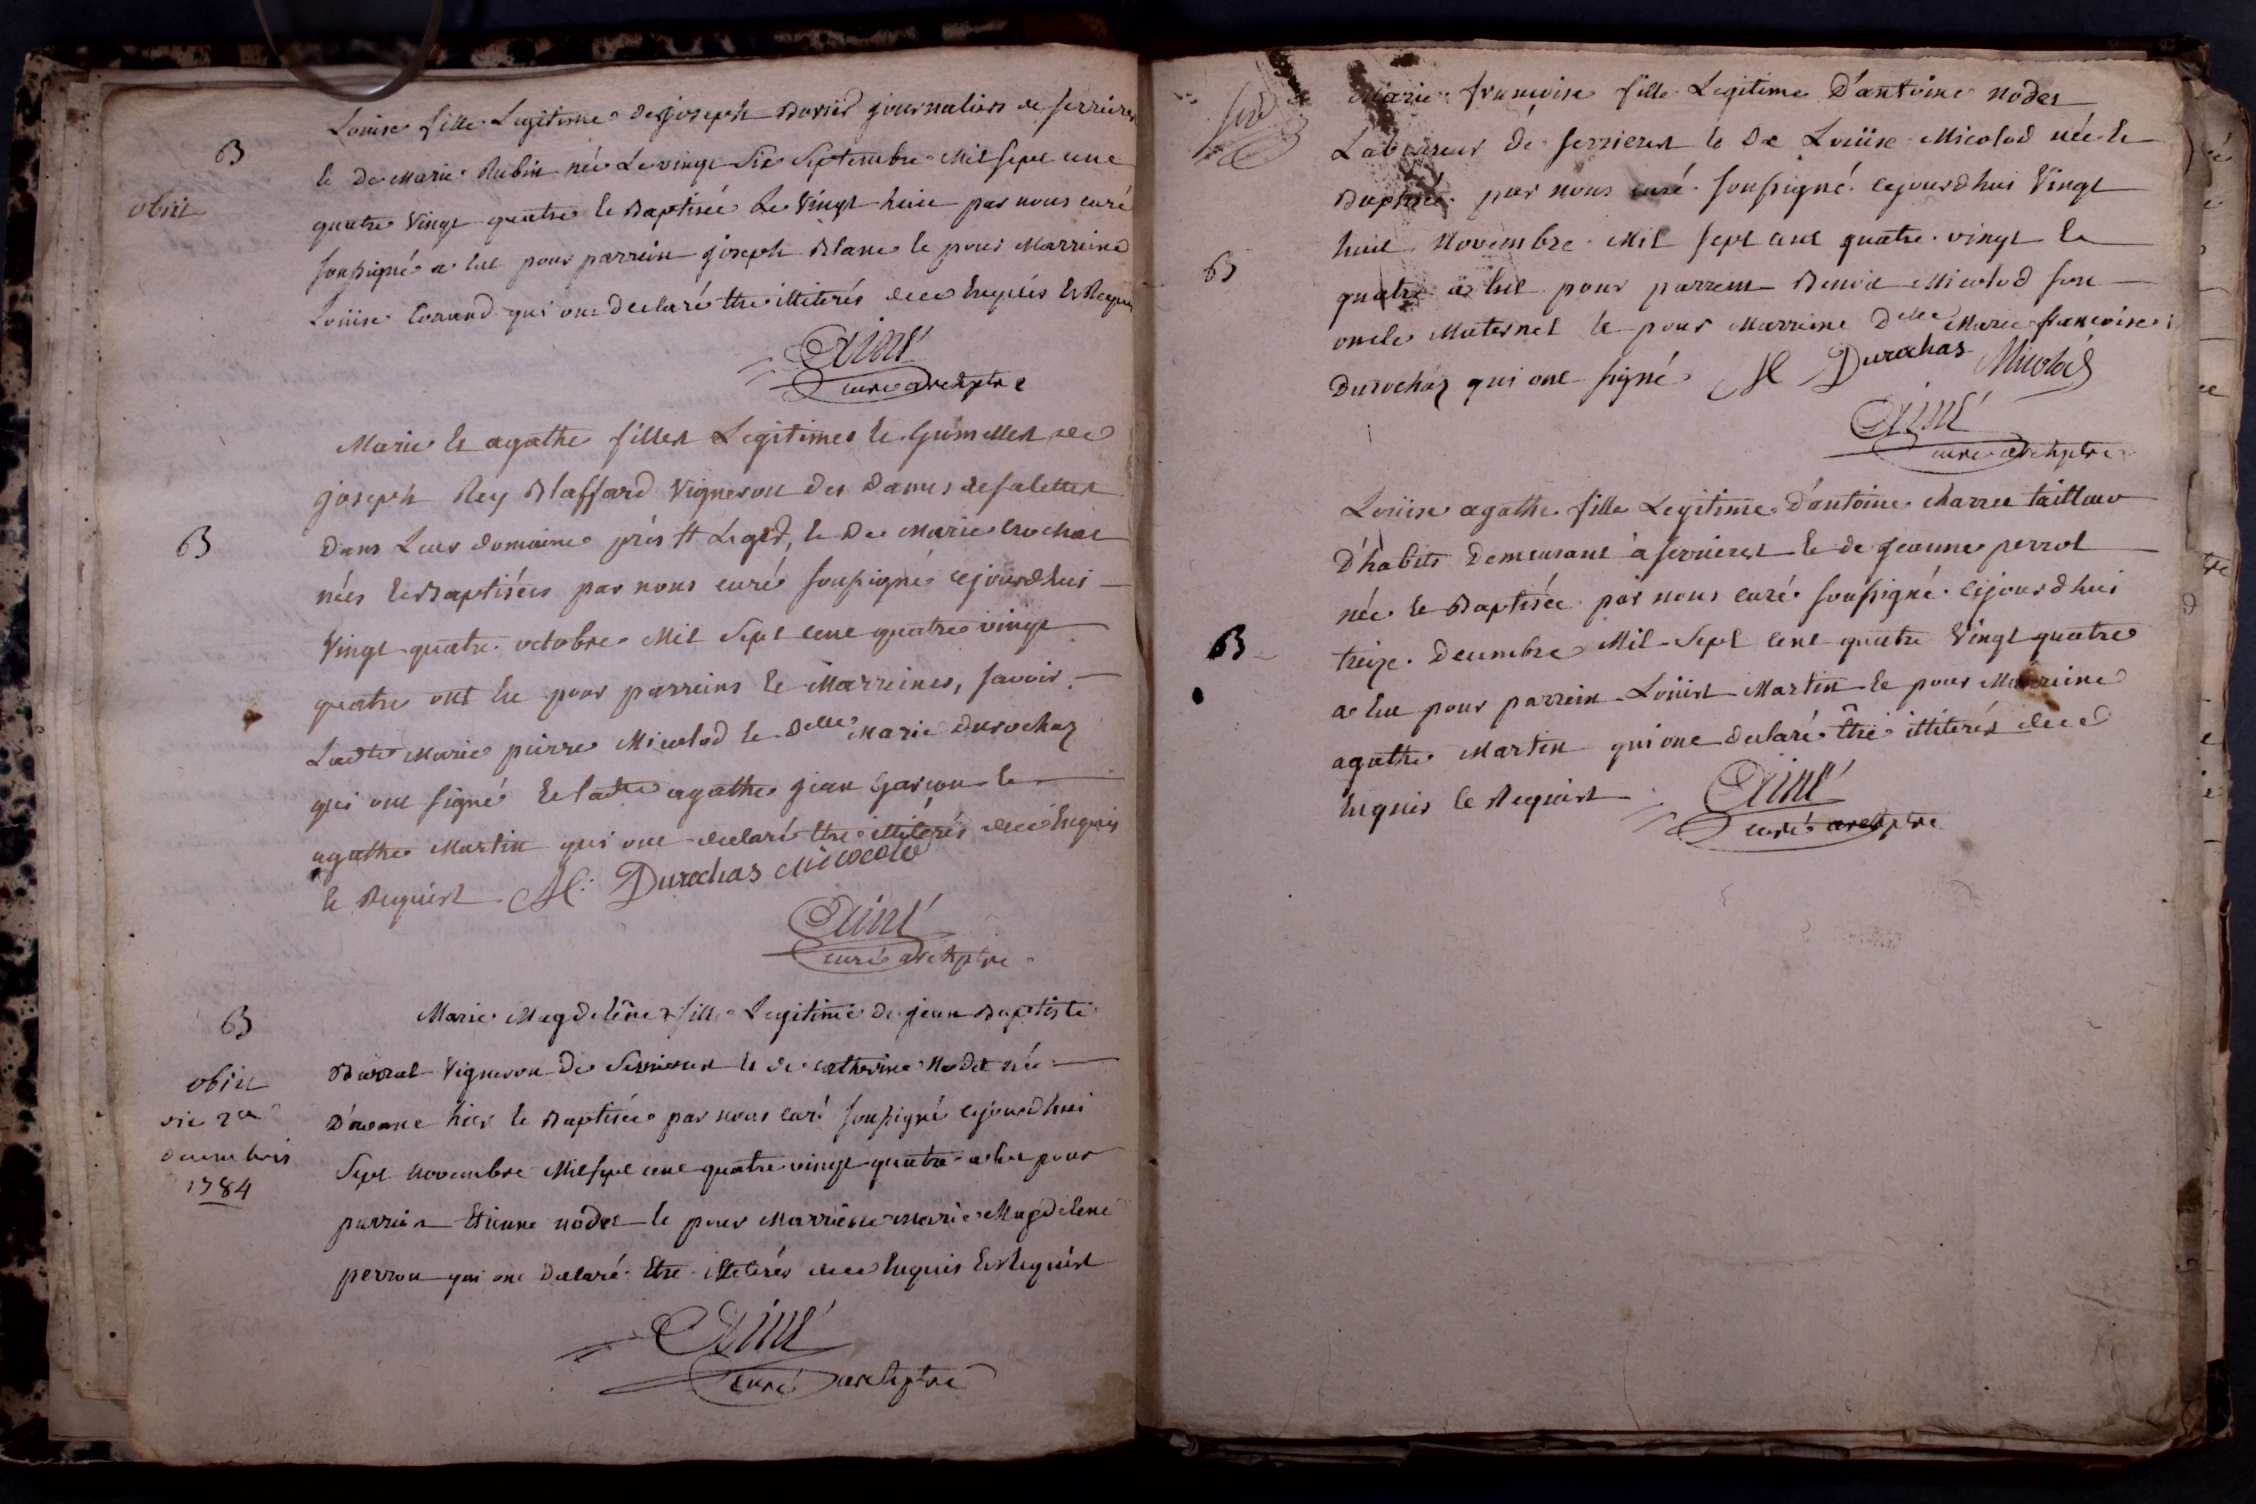 B
obiit
Louise fille Legitime de joseph Borier journaliers de ferrieres
et De Marie Rubin née Le vingt Six Septembre Mil sept cent
quatre Vingt quatre et Baptisée Le Vingt huit par nous curé
soussigné a Eut pour parrein joseph Blanc et pour Marreine
Loüise qui ont declaré être illiterés de ce Enquis Et Requis
Ainé
curé archiptre
B
Marie et agathe filles Legitimes et Gumelles de
joseph Rey Blaffard Vigneron des Dames de salettes
Dans Leur domaine près st Leger, et De Marie Crochat
nées et Baptisées par nous curé soussigné cejourdhui
Vingt quatre octobre Mil Sept cent quatre vingt
quatre ont Eu pour parreins et Marreines, savoir
Ladte Marie pierre Micolod et Delle Marie Durochaz
qui ont signé et ladte agathe jean Garçon et
agathe Martin qui ont declaré être illiterés de ce Enquis
et Requist M: Durochas Micolod
Ainé
curé archiptre
B
obiit
die 2a
decembris
1784
Marie Magdelêne fille Legitime de jean Baptiste
Barral Vigneron De Serrieres et de catherine Nodet née
D'avant hier et Baptisée par nous curé soussigné cejourdhui
Sept Novembre Mil sept cent quatre vingt quatre a Eut pour
parrein Etienne nodet et pour Marreine Marie Magdelene
perron qui ont declaré Etre illiterés de ce Enquis Et Requist
Ainé
curé archiptre
B
Marie françoise fille Legitime D'antoine Nodet
Laboureur de ferrieres et De Loüise Micolod née et
Baptisée par nous curé soussigné cejourdhui Vingt
huit Novembre Mil sept cent quatre vingt et
quatre a Eut pour parrein Benoit Micolod son
oncle Maternel et pour Marreine Delle Marie françoise
Durochaz qui ont signé M Durochas Micolod
Ainé
curé archiptre
B
Loüise agathe fille Legitime D'antoine Charrel tailleur
D'habits Demeurant à ferrieres et de Jeanne perrot
née et Baptisée par nous curé soussigné cejourdhui
treize Decembre Mil Sept cent quatre Vingt quatre
a Eut pour parrein Loüist Martin et pour Marreine
agathe Martin qui ont declaré être illiterés de ce
Enquis et Requist
Ainé
curé archiptre